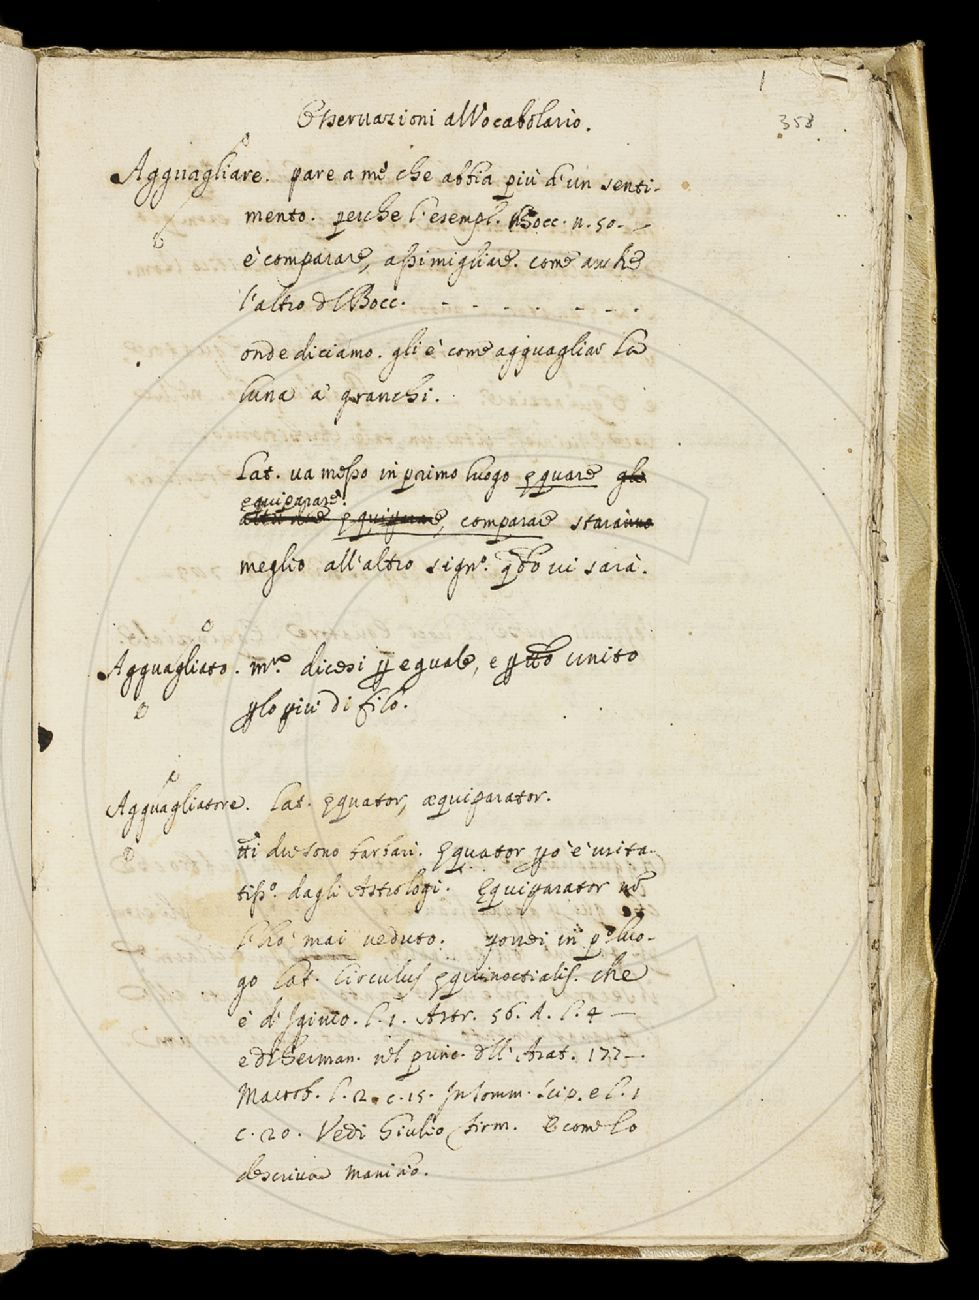 1
358
Osseruazioni all'Vocabolario.
Agguagliare. pare a me che abbia più d'un senti-
mento. perche l'esempl. Bocc. n. 50. —
è comparare, assimigliare. come anche
l'altro dl Bocc. - - - - - - -
onde diciamo. gli è come agguagliar la
luna a' granchi.
Lat. ua messo in primo luogo ęquare
ęquiparare
comparare
meglio all'altro sign.º qdo ui sarà.
Agguagliato. dicesi eguale, e unito
plo più di filo.
Agguagliatore. Lat. ęquator, æquiparator.
tti due sono barbari. Ęquator pò è usita-
tiss.º dagli Astrologi. Ęquiparator nō
l'hò mai ueduto. porrei in pº luo-
go Lat. Circulus ęquinoctialis. che
è d'Iginio. l. 1. Astr. 56. d. l. 4 —
e di German. nel princ. dll' Arat. 177 —.
Macrob. l. 2. c. 15. In somm. Scip. e l. 1
c. 20. Vedi Giulio Firm. E come lo
descriue Manilio.